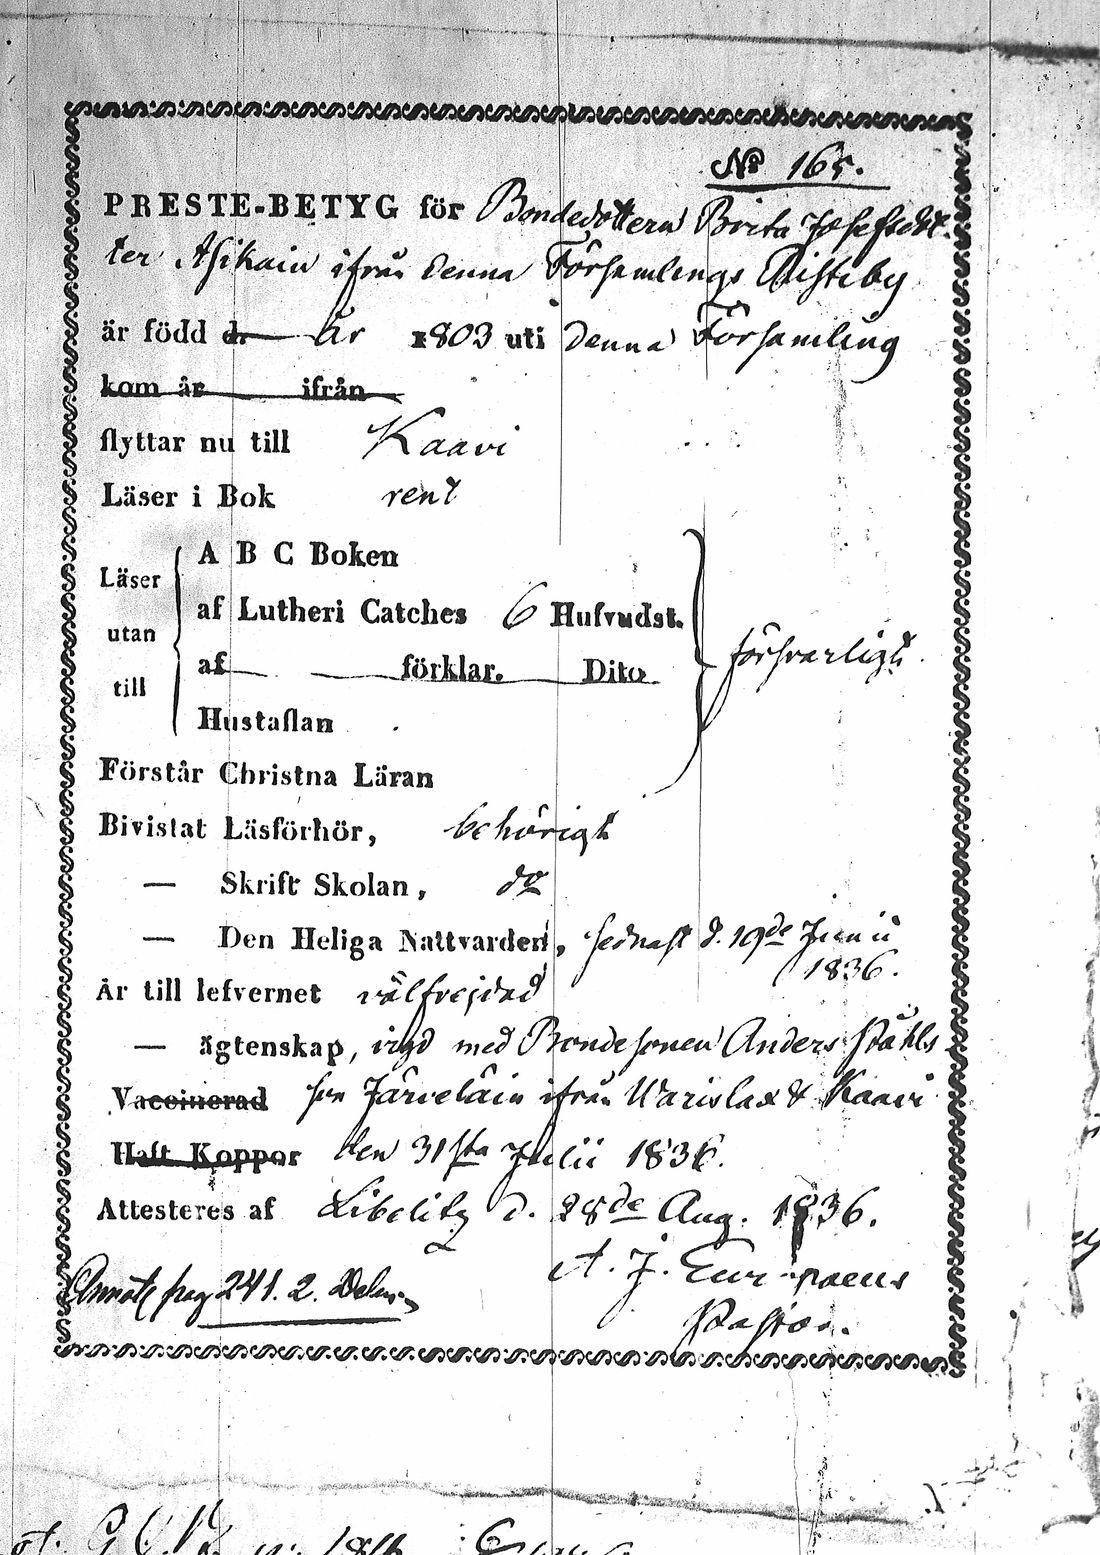 № 165.
PRESTE-BETYG för Bondedottern Brita Josefsdot-
ter Asikain ifrån denna Församlings Risteby
är född d. år 1803 uti denna Församling
kom år ifrån
flyttar nu till Kaavi
Läser i Bok rent
A B C Boken
Läser
af Lutheri Catches 6 Hufvudst.
utan
försvarligt.
af förklar. Dito
till
Hustaflan
Förstår Christna Läran
Bivistat Läsförhör, behörigt
— Skrift Skolan, do
— Den Heliga Nattvarden, sednast d. 19de Junii
1836.
Är till lefvernet välfrejdad
— ägtenskap, vigd med Bondesonen Anders Påhls
Vaccinerad son Järveläin ifrån Warislax & Kaavi
Haft Koppor den 31sta Julii 1836.
Attesteres af Libelitz d. 28de Aug. 1836.
A. J. Europaeus
Pastor.
pag 241. 2. Delen